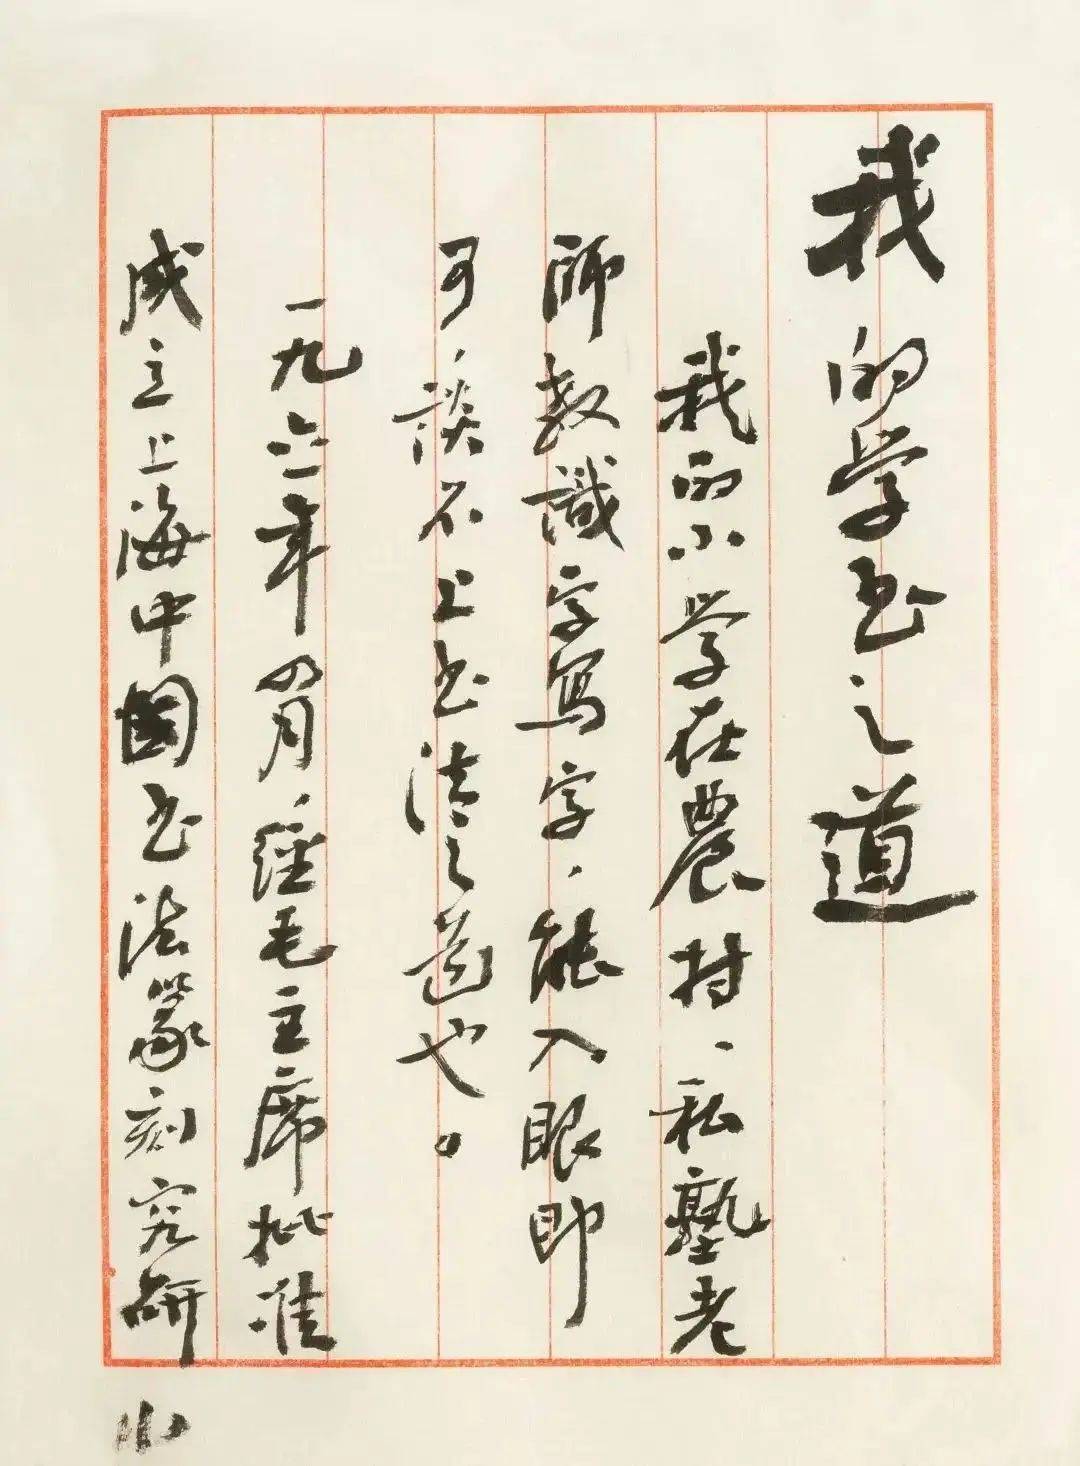 我的学书之道
我的小学在農村、私塾老
師教識字寫字、能入眼即
可、談不上书法之道也。
一九六一年四月、經毛主席批准
成立上海中國书法篆刻究研